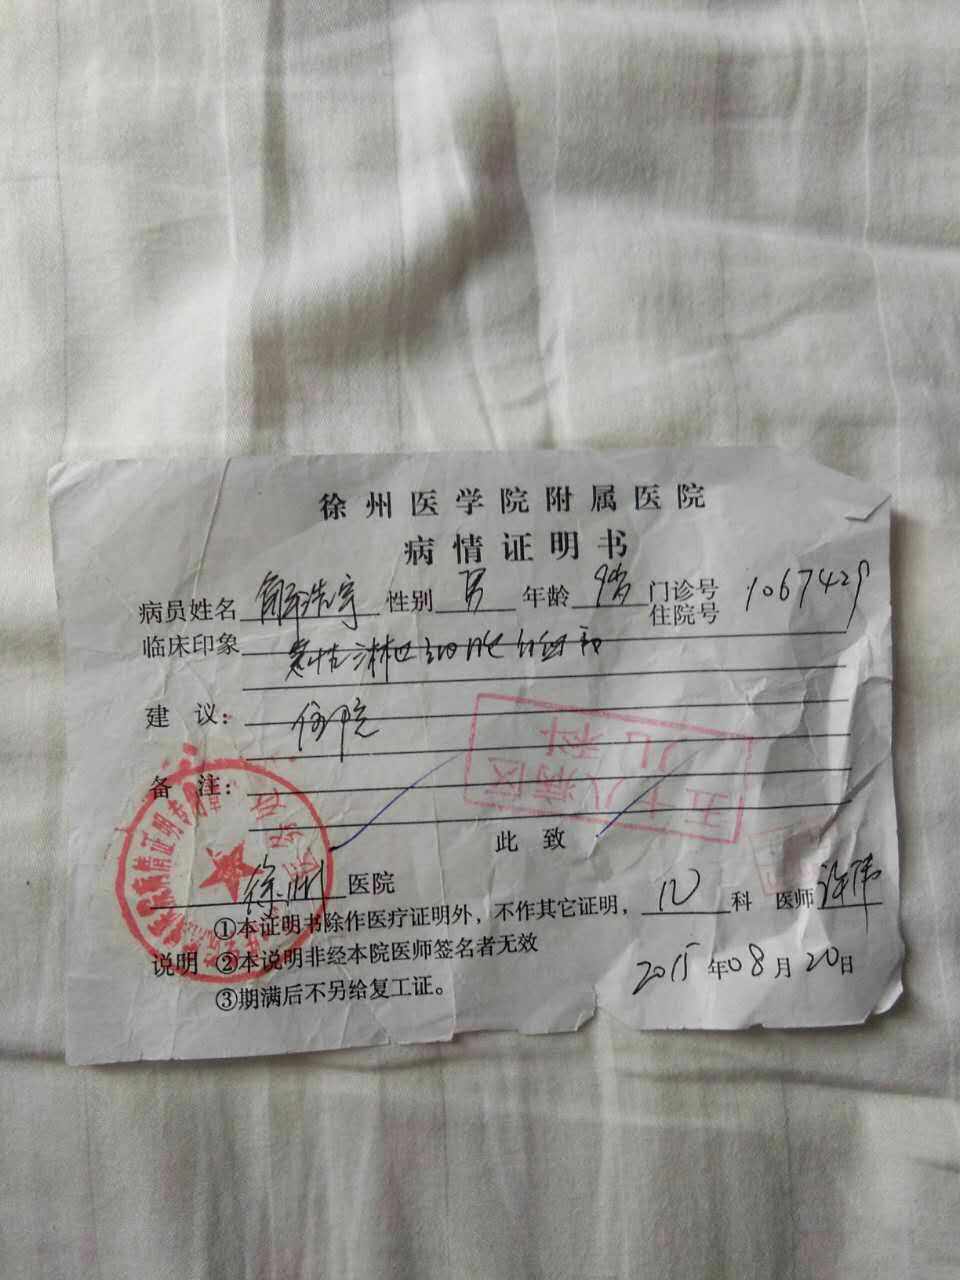 徐州医学院附属医院
病情证明书
病员姓名 浩宇 性别 男 年龄 9岁 门诊号 住院号 1067429
临床印象 急性淋巴细胞白血病
建 议： 住院
五十八病区
儿科
备 注：
此 致
徐州 医院
儿 科 医师 许伟
说明 ①本证明书除作医疗证明外，不作其它证明，
②本说明非经本院医师签名者无效
③期满后不另给复工证。
2015 年 08 月 20 日
病情证明专用章